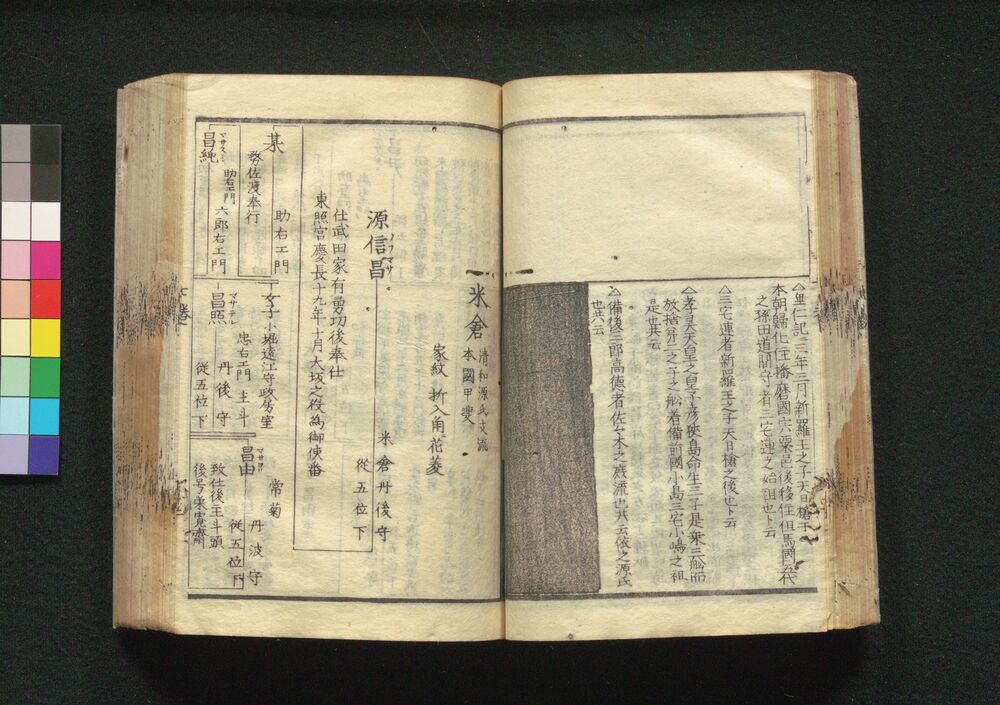 △垂仁記三年三月新羅王之子天日槍于
本朝歸化住播磨國宍粟邑後移住但馬國五代
之孫田道間守者三宅連之始祖也ト云
△三宅連者新羅王之子天日槍之後也ト云
△孝灵天皇之皇子彦狹島命生三子是乗三舩而
放捨第三之子之舩着備前國小島三宅小嶋之祖
是也共云
△備後三郎高德者佐々木之庶流也共云依之源氏
也共云
一米倉
清和源氏支流
本國甲斐
家紋 折入角花菱
源信昌
ノフマサ
米倉丹後守
從五位下
仕武田家有勇功後奉仕
東照宮慶長十九年十月大坂之役為御使番
某
助右エ門
務佐渡奉行
昌純
マサスミ
助右エ門
六郎右エ門
女子
小堀遠江守政房室
昌照
マサテル
忠右エ門 主斗
丹後守
從五位下
常菊
昌由
マサヨリ
丹波守
從五位下
致仕後主斗頭
後号朱寛齋